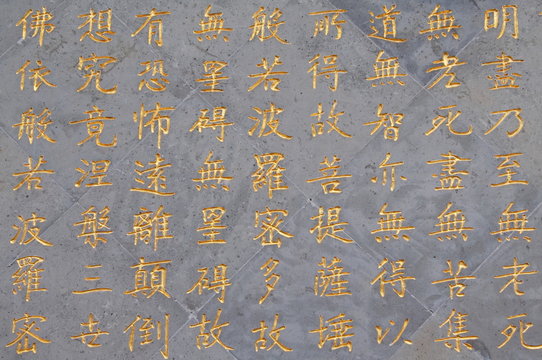 明盡乃至無老死
無老死盡無苦集
道無智亦無得以
所得故菩提薩埵
般若波羅密多故
無罣碍無罣碍故
有恐怖遠離顛倒
想究竟涅槃三世
佛依般若波羅密